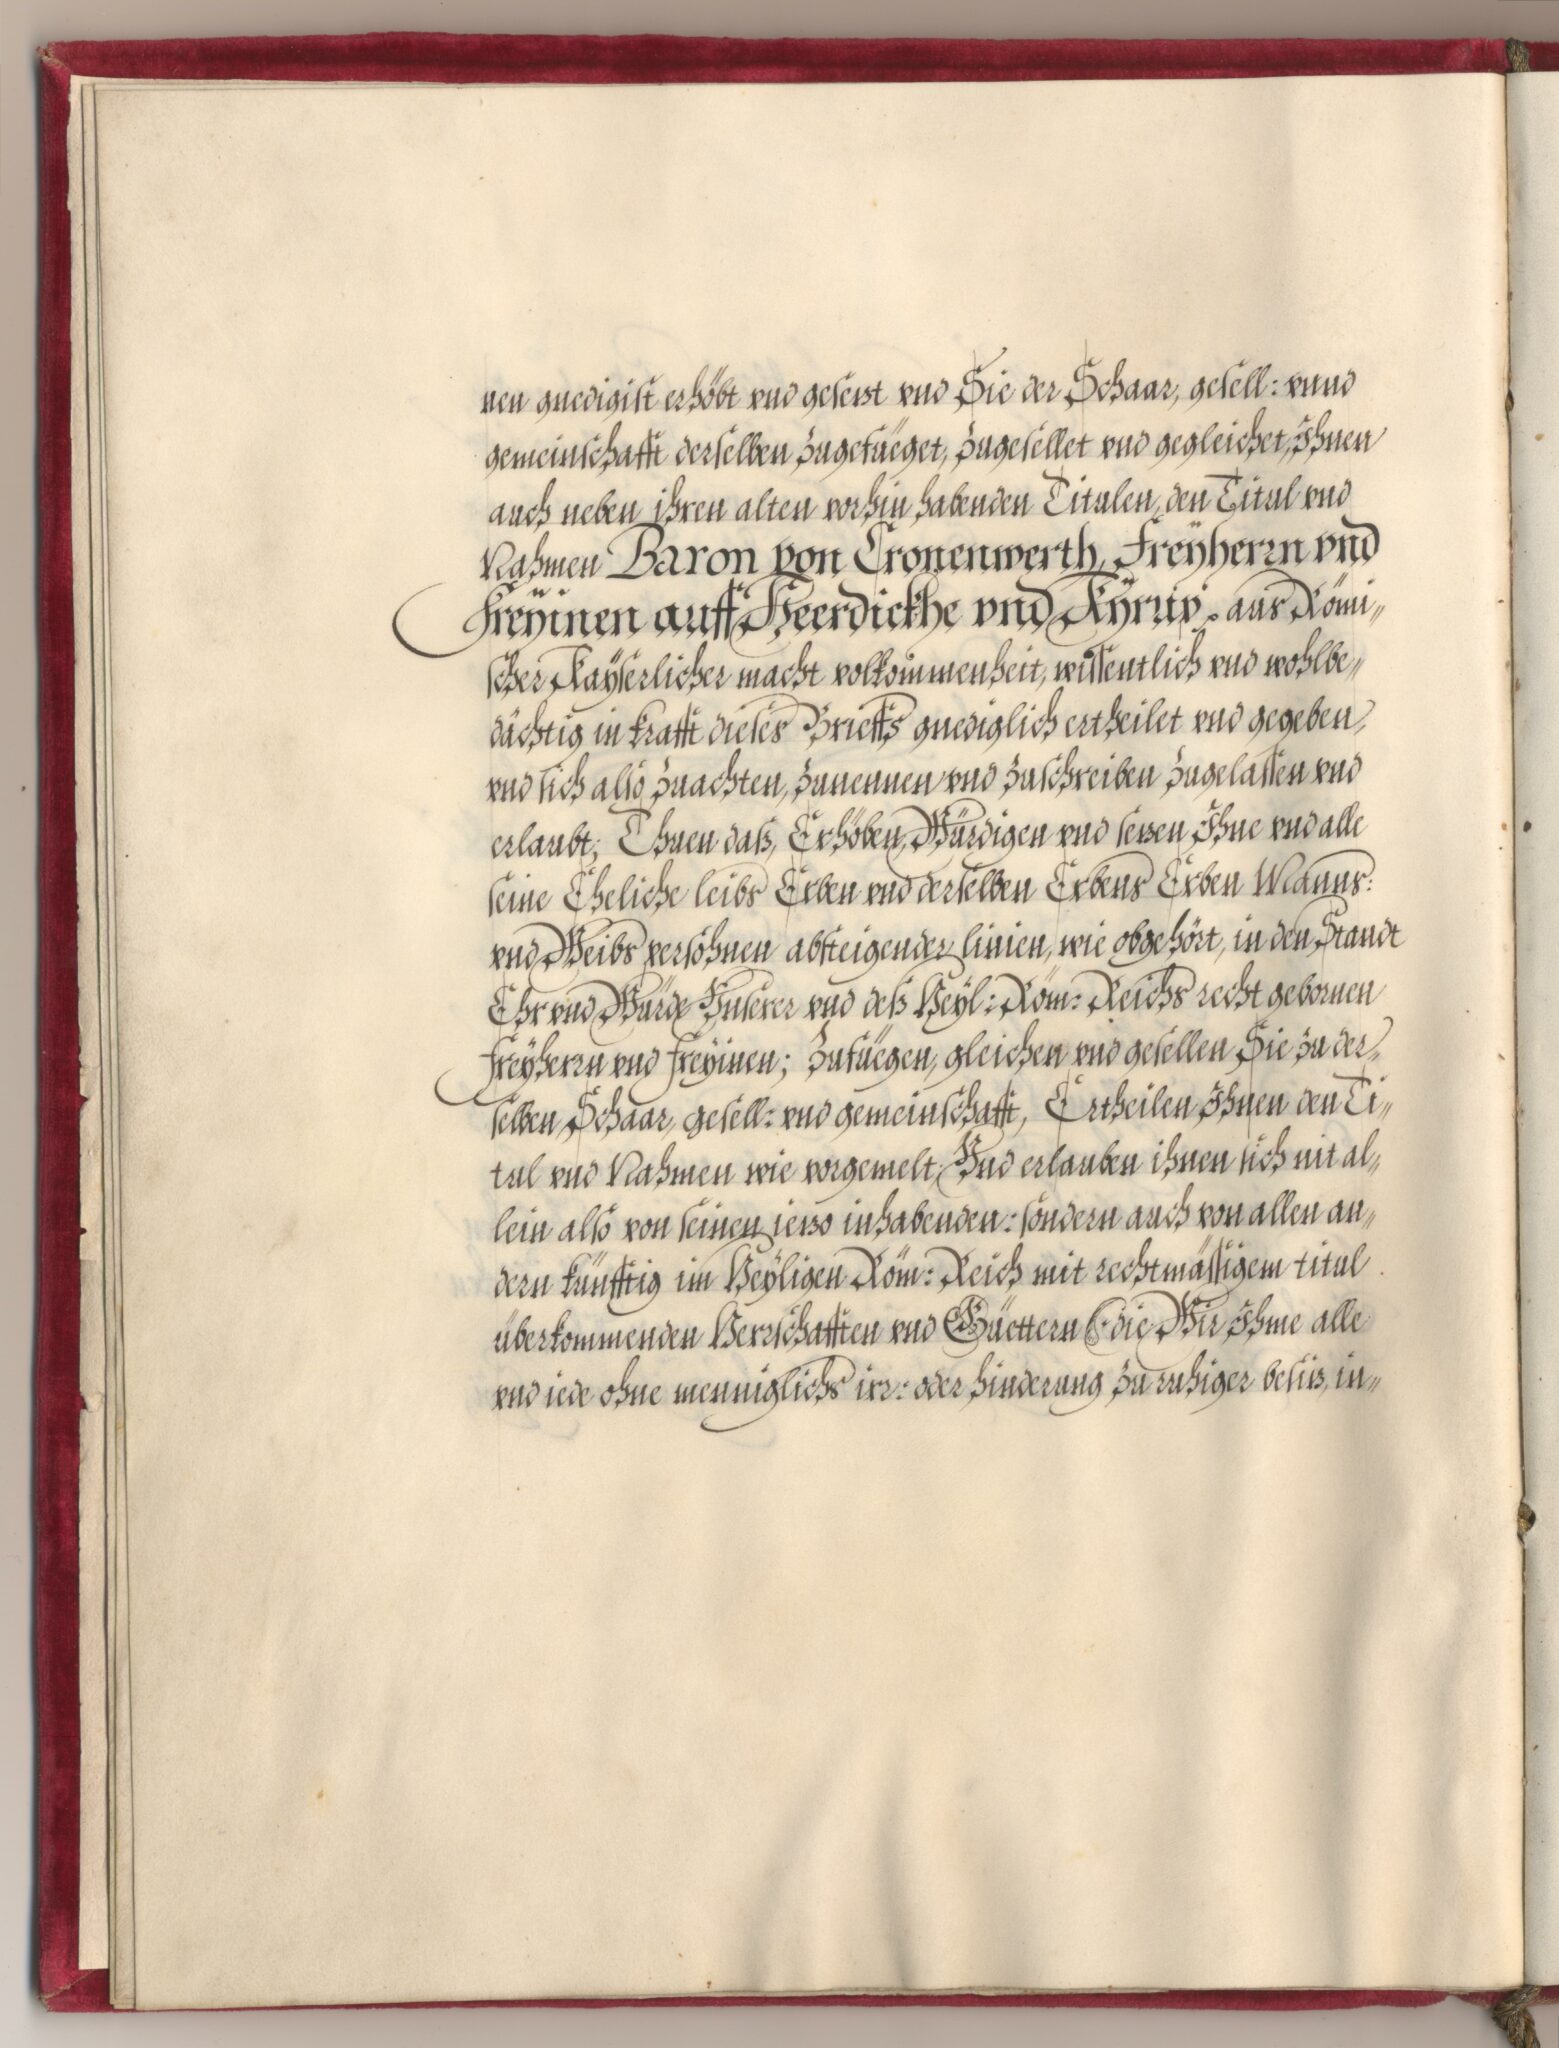 nen gnedigist erhöbt vnd gesetzt vnd Sie der Schaar, gesell: vnnd
gemeinschafft derselben zugefüeget, zugesellet vnd gegleichet, Ihnen
auch neben ihren alten vorhin habenden Titulen, den Titul vnd
Nahmen Baron von Cronenwerth, Freÿherrn vnd
Freÿinen auff Heerdickhe vnd Rÿrup. aus Römi„
scher Kaÿserlicher macht volkommenheit, wissentlich vnd wohlbe„
dächtig in krafft dieses Brieffs gnediglich ertheilet vnd gegeben,
vnd sich also zuachten, zunennen vnd zuschreiben zugelassen vnd
erlaubt; Thuen daß, Erhöben, Würdigen vnd setzen Ihne vnd alle
seine Eheliche leibs Erben vnd derselben Erbens Erben Manns:
vnd Weibs persohnen absteigender linien, wie obgehört, in den Standt
Ehr vnd Würde Vnserer vnd deß Heÿl: Röm: Reichs recht gebornen
Freÿherrn vnd Freÿinen; Zufüegen, gleichen vnd gesellen Sie zu der„
selben Schaar, gesell: vnd gemeinschafft, Ertheilen Ihnen den Ti„
tul vnd Nahmen wie vorgemelt, Vnd erlauben ihnen sich nit al„
lein also von seinen ietzo inhabenden: sondern auch von allen an„
dern künfftig im Heÿligen Röm: Reich mit rechtmässigem titul
überkommenden Herrschafften vnd Güettern (die Wir Ihme alle
vnd iede ohne menniglichs irr: oder hinderung zu ruhiger besitz, in„